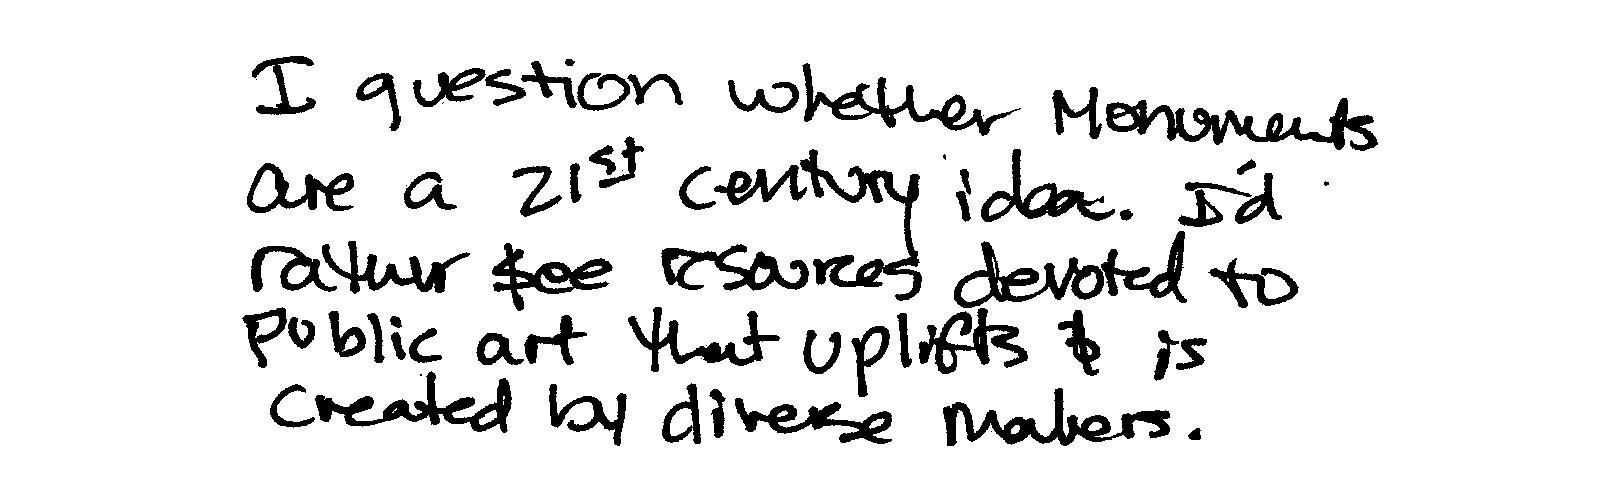 I question whether Monuments
are a 21st century idea. I'd
rather see resources devoted to
Public art that uplifts & is
Created by diverse makers.